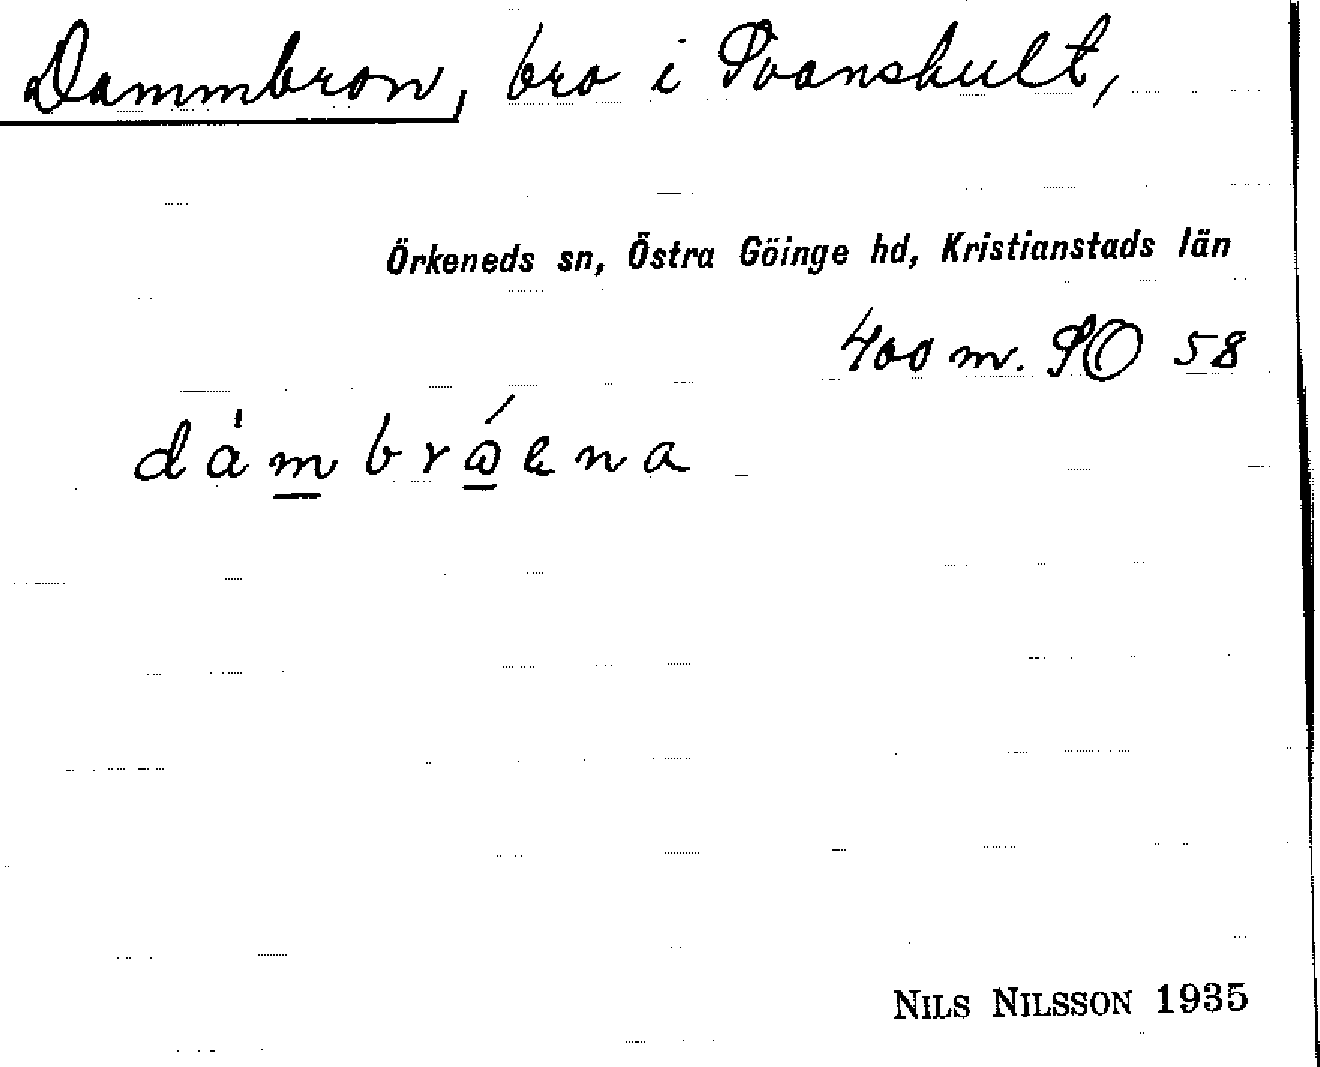 Dammbron, bro i Svanshult,
Örkeneds sn, Östra Göinge hd, Kristianstads län
400 m. SO 58
NILS NILSSON 1935